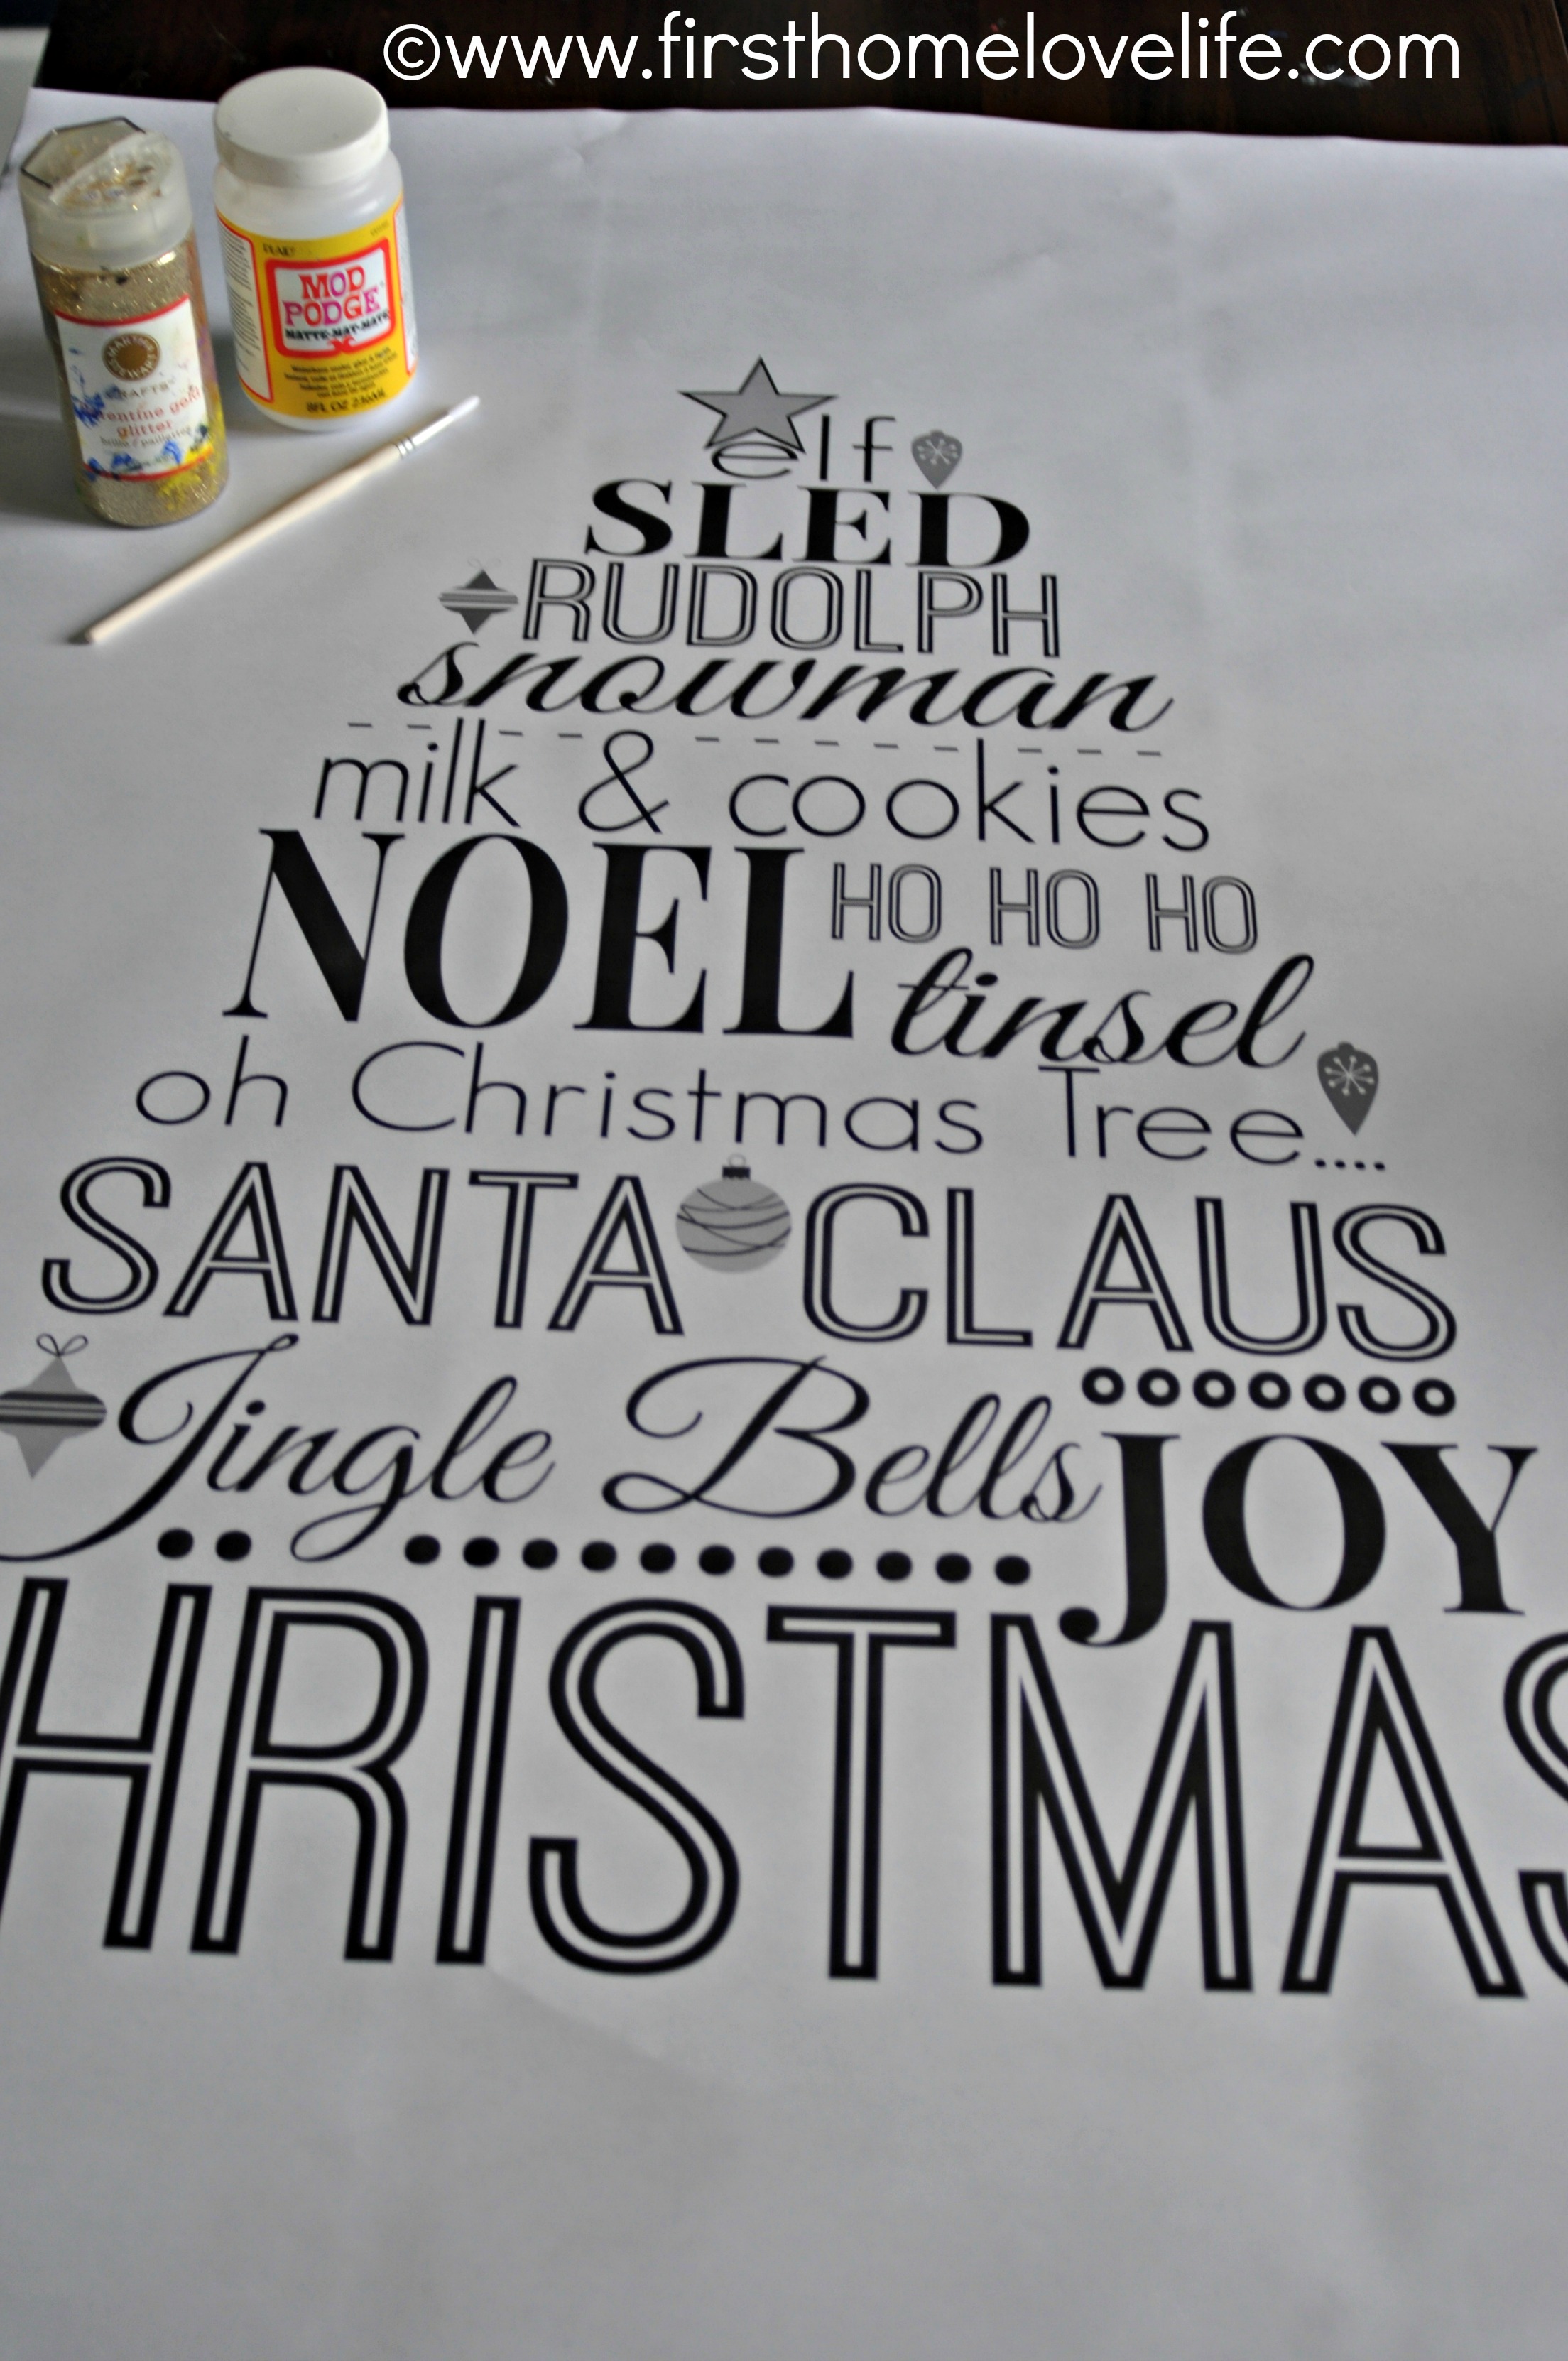 ©www.firsthomelovelife.com
PLAID
MOD
PODGE
MATTE-MAT-MATE
8FL OZ 236ML
MARTHA
STEWART
CRAFTS
glitter
elf
SLED
RUDOLPH
snowman
milk & cookies
NOEL HO HO HO
tinsel
oh Christmas Tree....
SANTA CLAUS
Jingle Bells JOY
HRISTMAS